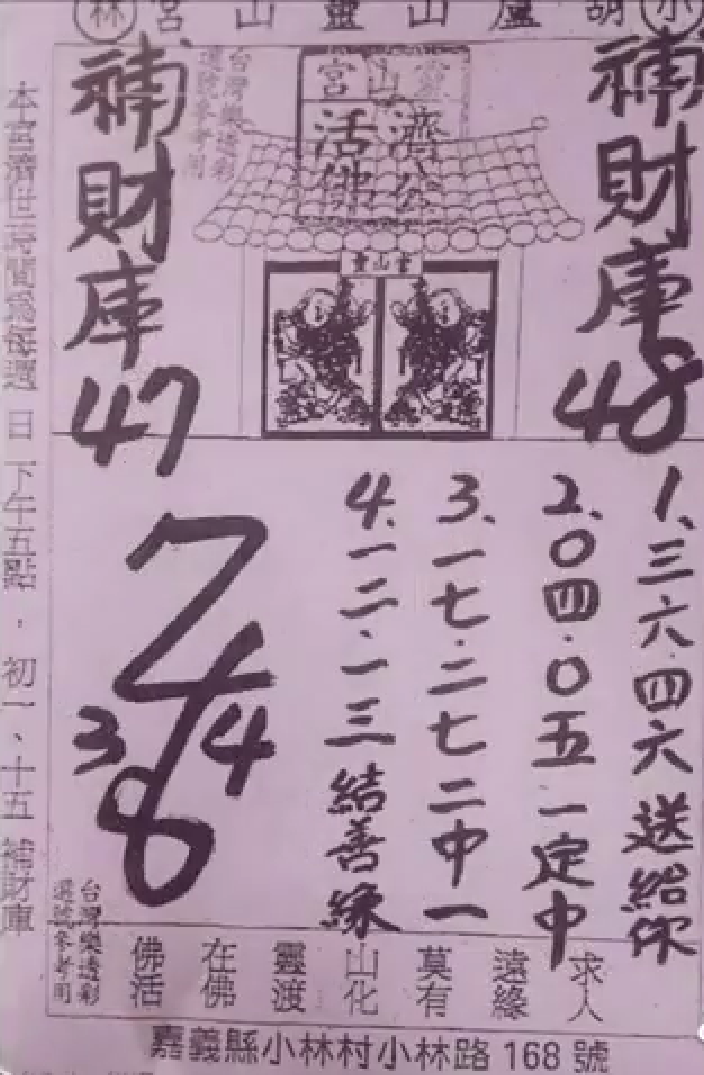 小 胡蘆山靈山宮 林
靈山宮
濟公
活佛
台灣樂透彩
選號參考用
補財庫 48
補財庫 47
1、三六.四六送給你
2、0四.0五一定中
3、一七.二七二中一
4、一二.一三結善緣
7
3 4
8
台灣樂透彩
選號參考用
佛在靈山莫遠求
活佛渡化有緣人
嘉義縣小林村小林路 168 號
本宮濟世時間為每週 日 下午五點，初一、十五 補財庫